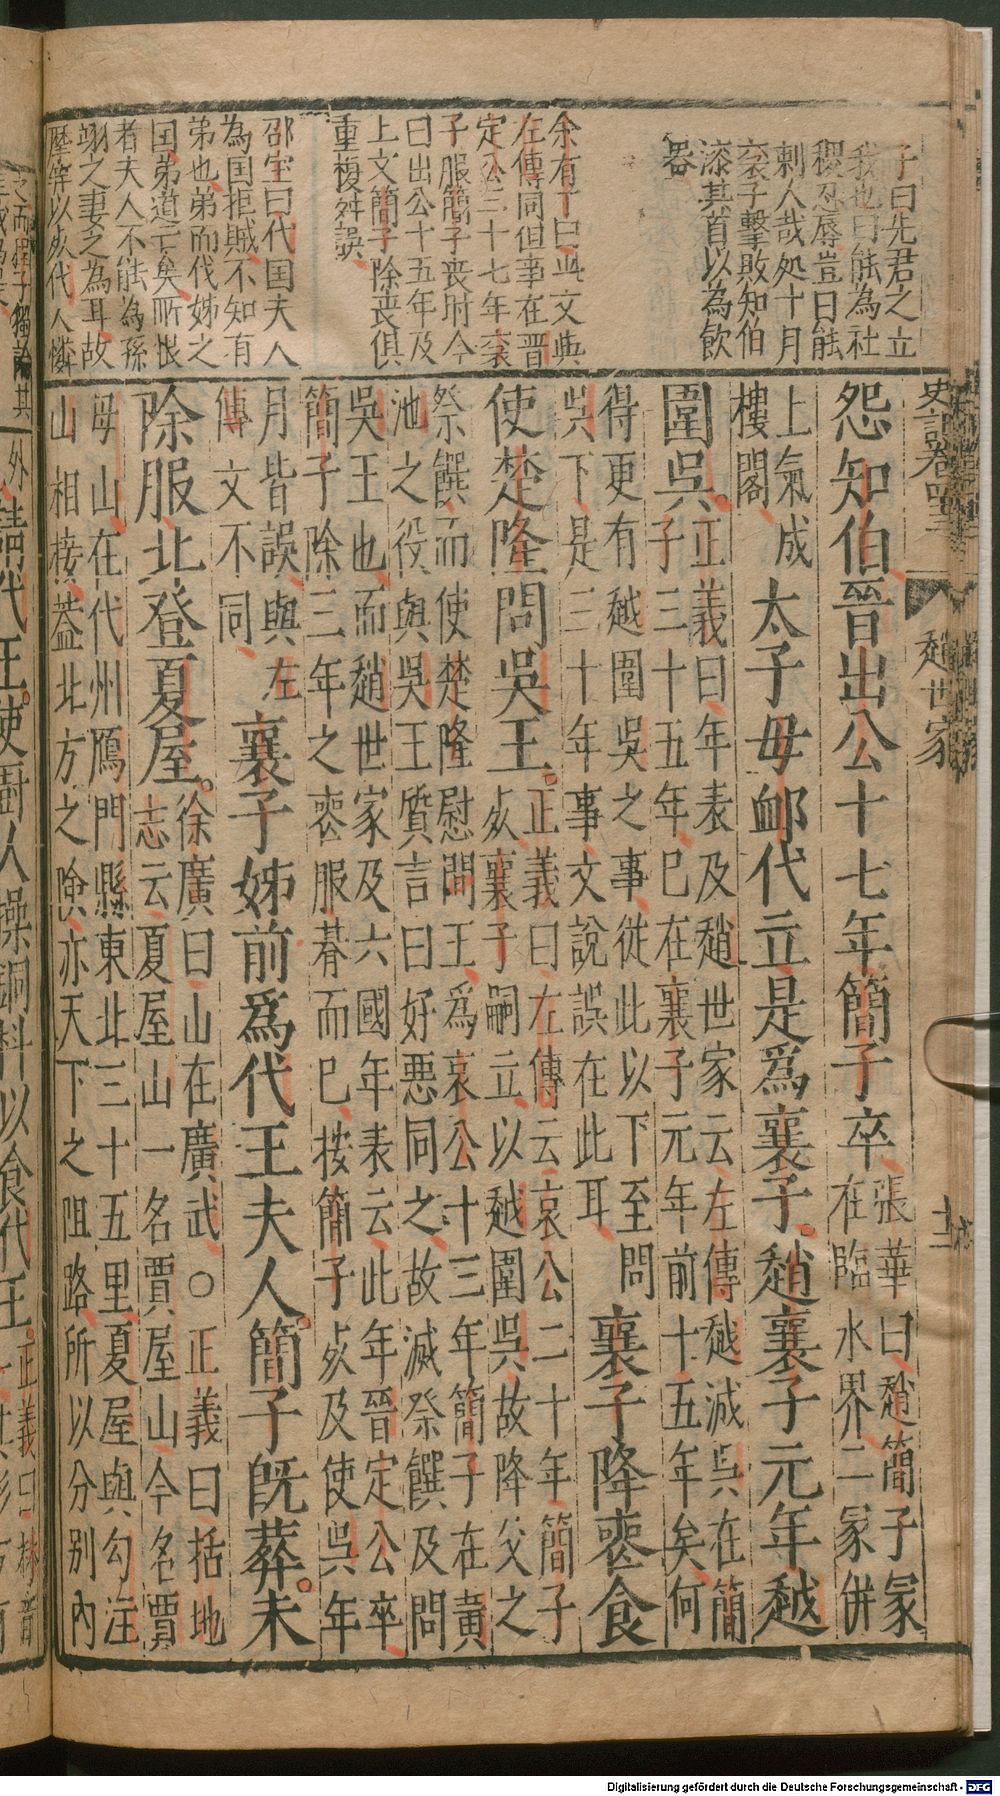 史記卷四十三
趙世家
子曰先君之立
我也曰能為社
稷忍辱豈曰能
刺人哉処十月
衮子擊敗知伯
漆其首以為飲
器
余有丁曰與文與
左傳同但事在晋
定公三十七年㐮
子服簡子丧时今
曰出公十五年及
上文簡子除丧俱
重複舛誤
邵宝曰代国夫人
為囯拒賊不知有
弟也弟而代姊之
囯弟道亡矣所恨
者夫人不能為孫
翊之妻之為耳故
怨知伯晉出公十七年簡子卒
張華曰趙簡子冢
在臨水界二冢併
上氣成
樓閣
太子毋卹代立是爲襄子趙襄子元年越
圍吳
正義曰年表及趙世家云左傳越滅吳在簡
子三十五年巳在襄子元年前十五年矣何
得更有越圍吳之事從此以下至問
吳下是三十年事文說誤在此耳
襄子降䘮食
使楚隆問吳王
正義曰左傳云哀公二十年簡子
死襄子嗣立以越圍吳故降父之
祭饌而使楚隆慰問王爲哀公十三年簡子在黃
池之役與吳王質言曰好惡同之故減祭饌及問
吳王也而趙世家及六國年表云此年晉定公卒
簡子除三年之䘮服朞而巳按簡子死及使吳年
月皆誤與左
傳文不同
襄子姊前爲代王夫人簡子旣葬未
除服北登夏屋
徐廣曰山在廣武○正義曰括地
志云夏屋山一名賈屋山今名賈
母山在代州鴈門縣東北三十五里夏屋與勾注
山相接蓋北方之險亦天下之阻路所以分別內
外請代王使廚人操銅枓以食代王